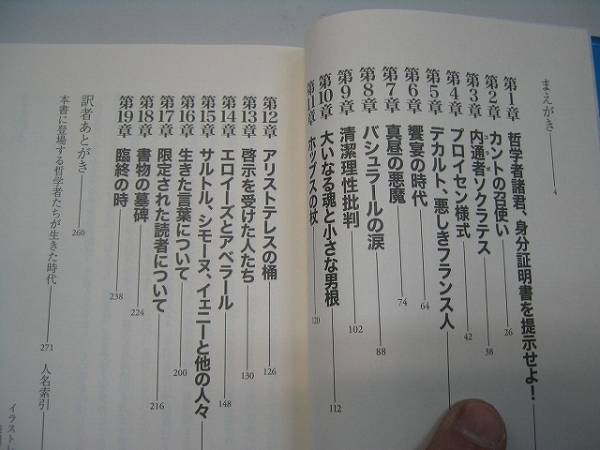 まえがき 4
第1章 哲学者諸君、身分証明書を提示せよ!
第2章 カントの召使い 26
第3章 内通者ソクラテス 38
第4章 プロイセン様式 42
第5章 デカルト、悪しきフランス人
第6章 饗宴の時代 64
第7章 真昼の悪魔 74
第8章 バシュラールの涙 88
第9章 清潔理性批判 102
第10章 大いなる魂と小さな男根 112
第11章 ホッブスの杖 120
第12章 アリストテレスの桶 126
第13章 啓示を受けた人たち 130
第14章 エロイーズとアベラール 148
第15章 サルトル、シモーヌ、イェニーと他の人々
第16章 生きた言葉について 200
第17章 限定された読者について 216
第18章 書物の墓碑 224
第19章 臨終の時 238
訳者あとがき 260
本書に登場する哲学者たちが生きた時代 271
人名索引
イラストレ